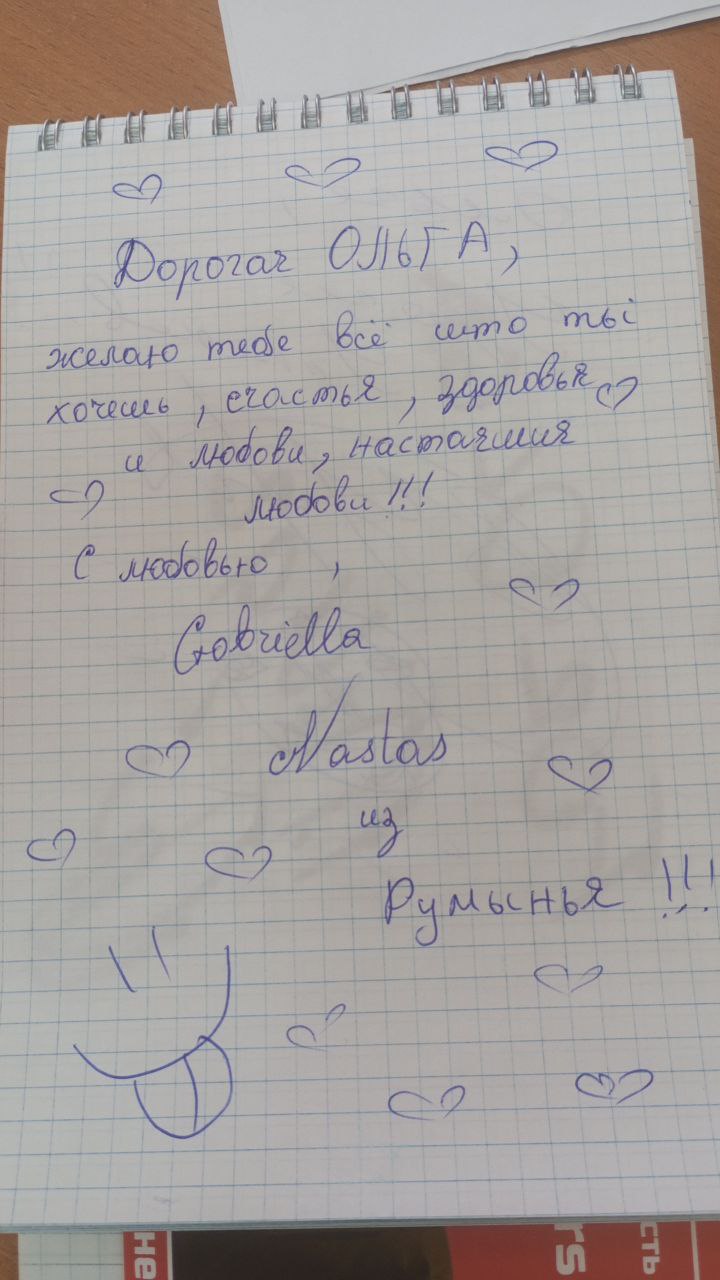 Дорогач ОЛЬГА,
желаю тебе всё што ты
хочешь, счастья, здоровья
и любови, настаяшия
любови!!!
С любовью,
Gabriella
Nastas
из
Румынья !!!
не
rs
сть